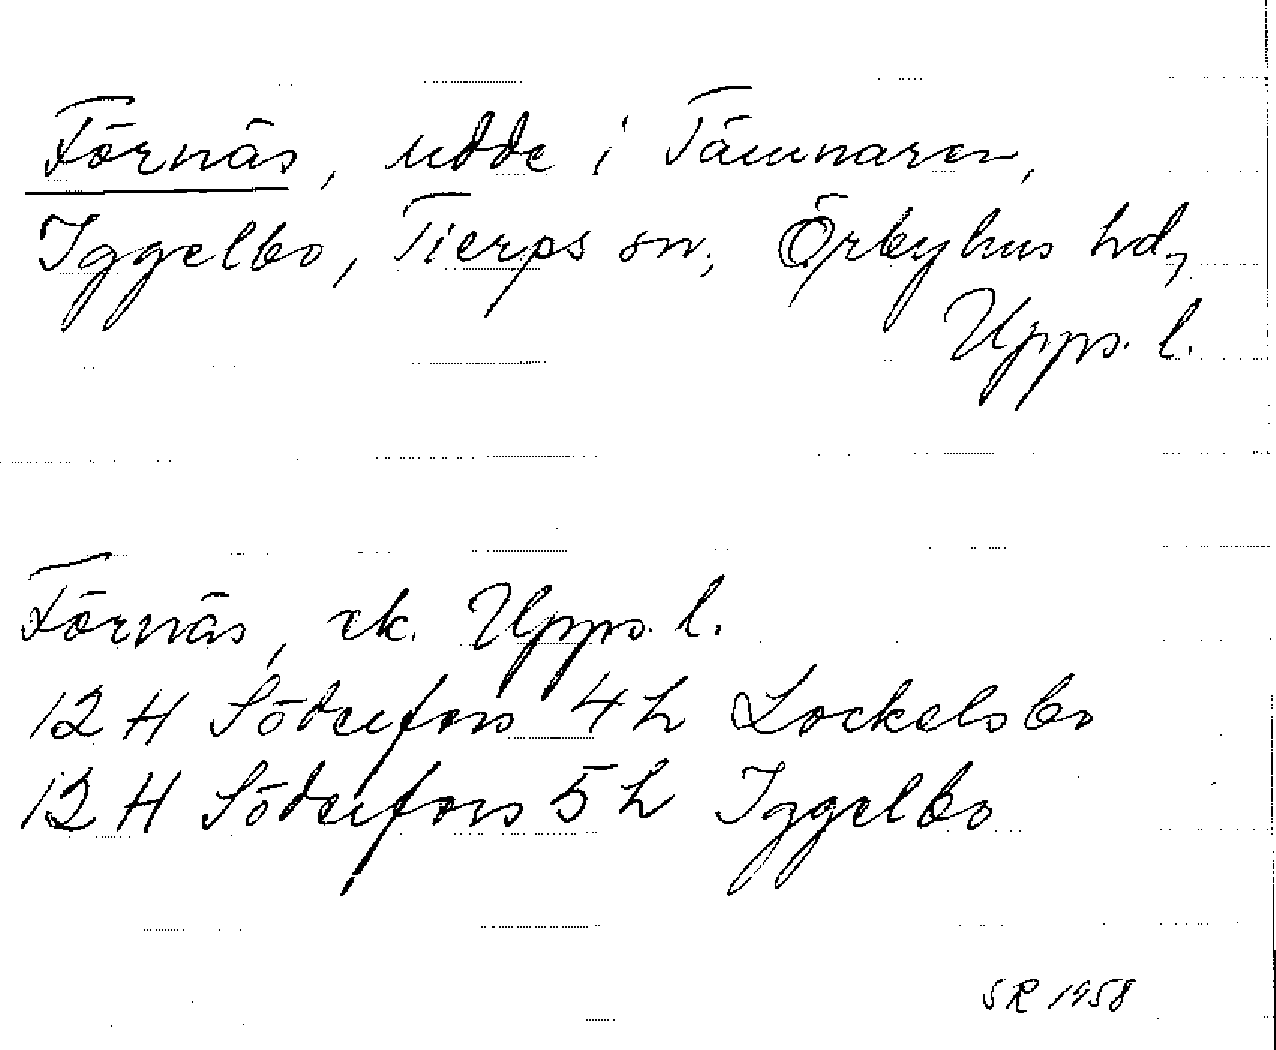 Förnäs, udde i Tämnaren,
Iggelbo, Tierps sn, Örbyhus hd,
Upps. l.
Förnäs, ek. Upps. l.
12 H Söderfors 4 h Lockelsbo
12 H Söderfors 5 h Iggelbo
SR 1958